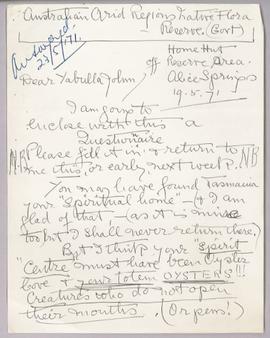 Australian Arid Regions Native Flora
Reserve. (Govt)
Answered
23/5/71.
Home Hut
off Reserve Area.
Alice Springs
19.5.71
Dear Yabulla John,
I am going to
enclose with this a
Questionaire
NB Please fill it in & return to NB
me this, or early, next week.
You may have found Tasmania
your "Spiritual home" – & I am
glad of that, – (as it is mine
too but I shall never return there.)
But I think your "Spirit
Centre must have been Oyster
Cove & your totem OYSTERS"!!!
Creatures who do not open
their mouths. (Or pens!)